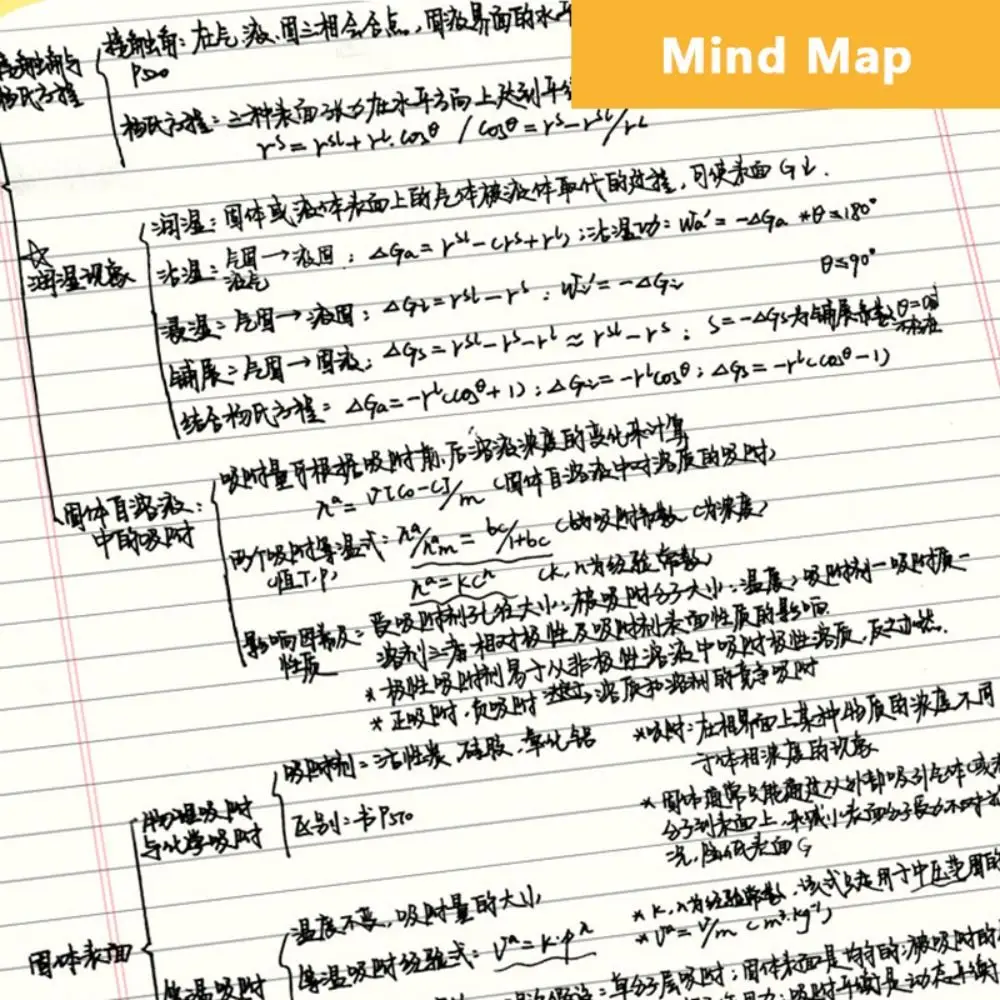 Mind Map
接触角与
杨氏方程
接触角：在气、液、固三相会合点，固液界面的水平
P520
杨氏方程：三种表面张力在水平方向上达到平
rˢ = rˢᴸ + rᴸ·cosθ / cosθ = rˢ - rˢᴸ/rᴸ
☆
润湿现象
润湿：固体或液体表面上的气体被液体取代的过程，可使表面G↓.
沾湿：气固/液气→液固：ΔGa = rˢᴸ - (rˢ + rᴸ)；沾湿功：Wa' = -ΔGa *θ≤180°
浸湿：气固→液固：ΔGi = rˢᴸ - rˢ：Wi' = -ΔGi θ≤90°
铺展：气固→固液：ΔGs = rˢᴸ - rˢ - rᴸ ≈ rˢᴸ - rˢ：S = -ΔGs为铺展系数 θ=0
结合杨氏方程：ΔGa = -rᴸ(cosθ + 1)；ΔGi = -rᴸcosθ；ΔGs = -rᴸ(cosθ - 1)
固体自溶液：
中的吸附
吸附量可根据吸附前、后溶液浓度的变化来计算
nᵃ = V[c₀ - c]/m (固体自溶液中对溶质的吸附)
两个吸附等温式：nᵃ/nᵃm = bc/1+bc (b为吸附系数 c为浓度)
(恒T、P) nᵃ = kcⁿ (k、n为经验常数)
影响因素及：
性质
受吸附剂孔径大小；被吸附分子大小；温度；吸附剂-吸附质-
溶剂三者相对极性及吸附剂表面性质的影响
* 极性吸附剂易于从非极性溶液中吸附极性溶质，反之亦然.
* 正吸附、负吸附 溶质和溶剂的竞争吸附
固体表面
物理吸附
与化学吸附
吸附剂：活性炭、硅胶、氧化铝
区别：书P510
*吸附：在相界面上某种物质的浓度不同
于体相浓度的现象
* 固体通常只能通过从外部吸引气体(或
分子到表面上，来减小表面分子受力不对
况，降低表面G
等温吸附
温度不变，吸附量的大小
等温吸附经验式：Vᵃ = k·pⁿ
* k、n为经验常数，该式只适用于中压范围的
* Vᵃ = V/m (m³·kg⁻¹)
单分子层吸附；固体表面是均匀的；被吸附的
吸附平衡是动态平衡